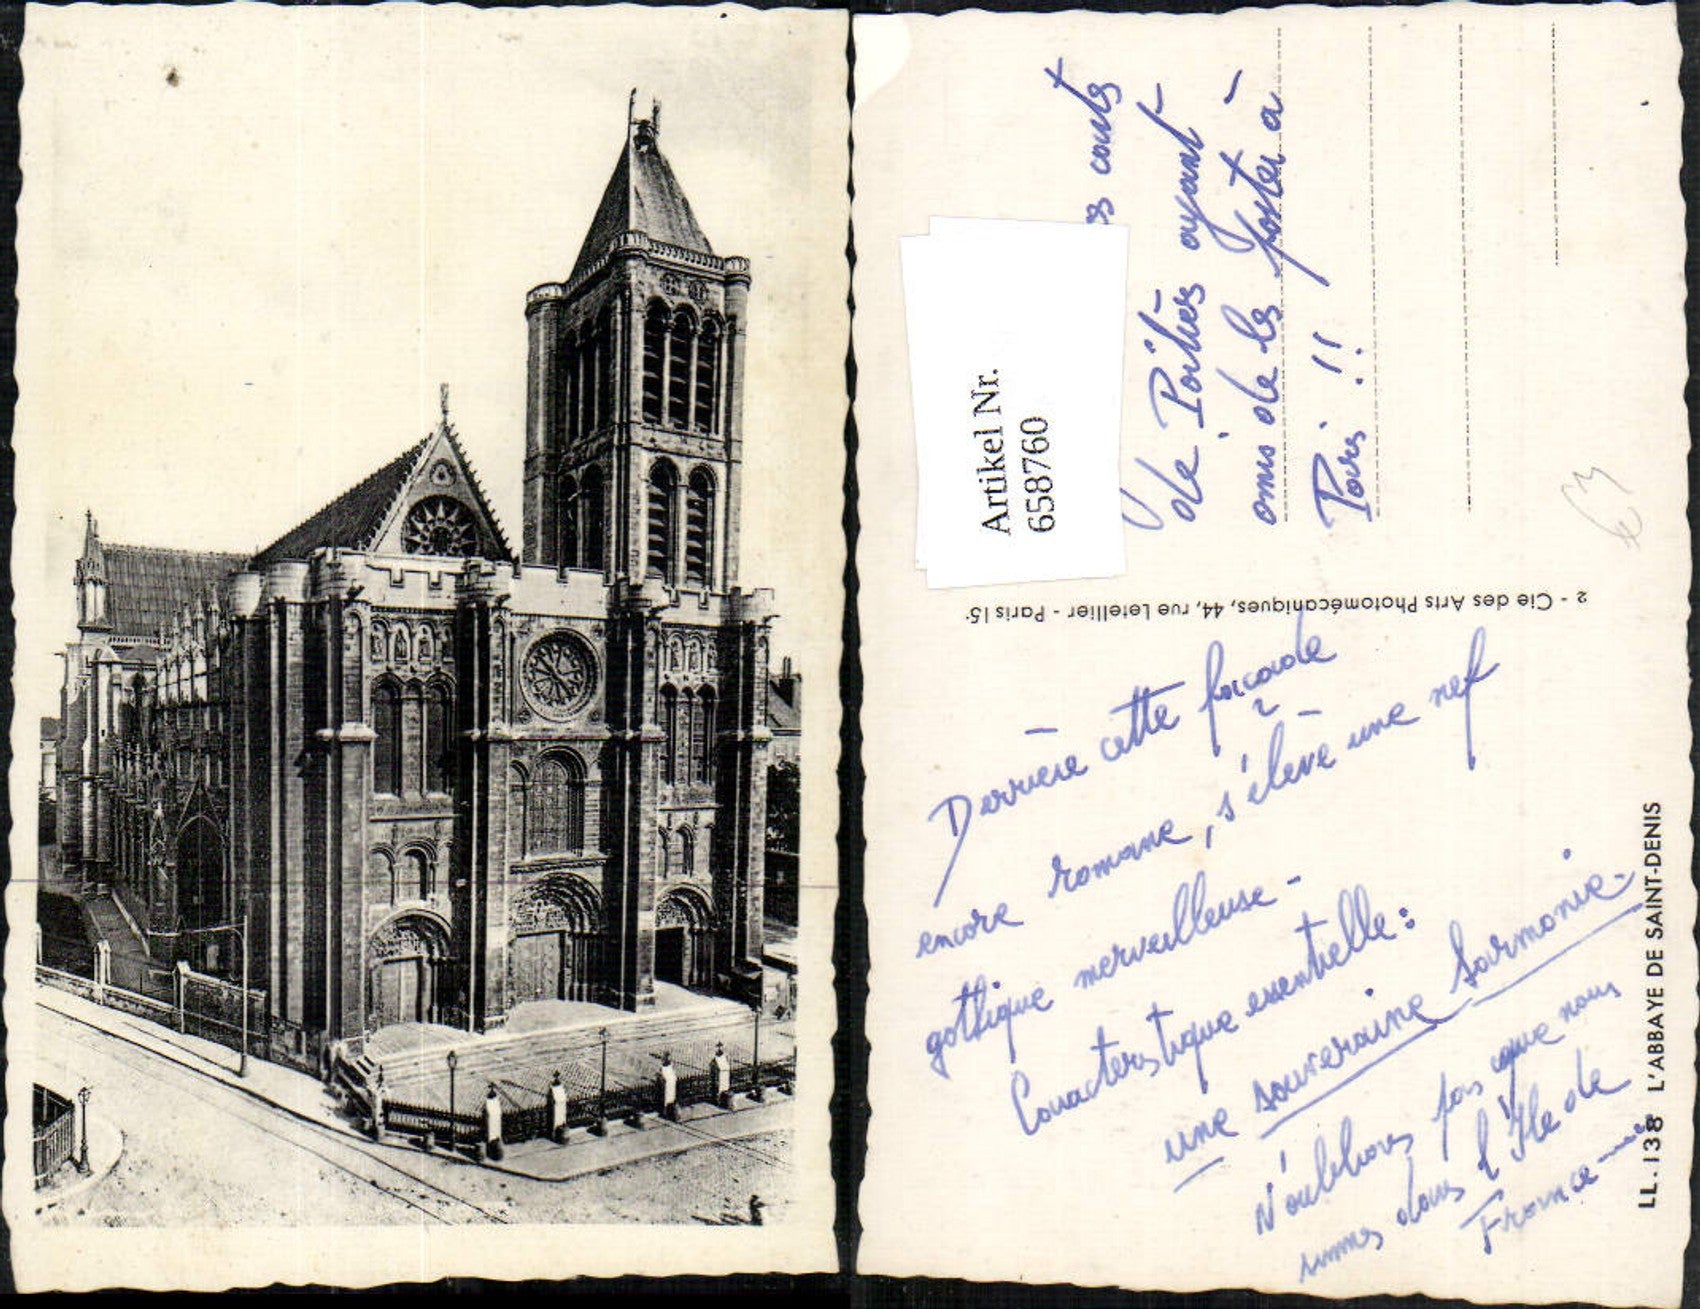 cartes
de Poitiers ayant
omis de les poster à
Paris !!
Artikel Nr.
658760
2 - Cie des Arts Photomécaniques, 44, rue Letellier - Paris 15ᵉ
Derrière cette façade
encore romane, s'élève une nef
gothique merveilleuse -
Caractéristique essentielle :
une souveraine harmonie -
N'oublions pas que nous
sommes dans l'Ile de
France
LL. 138 L'ABBAYE DE SAINT-DENIS
€3